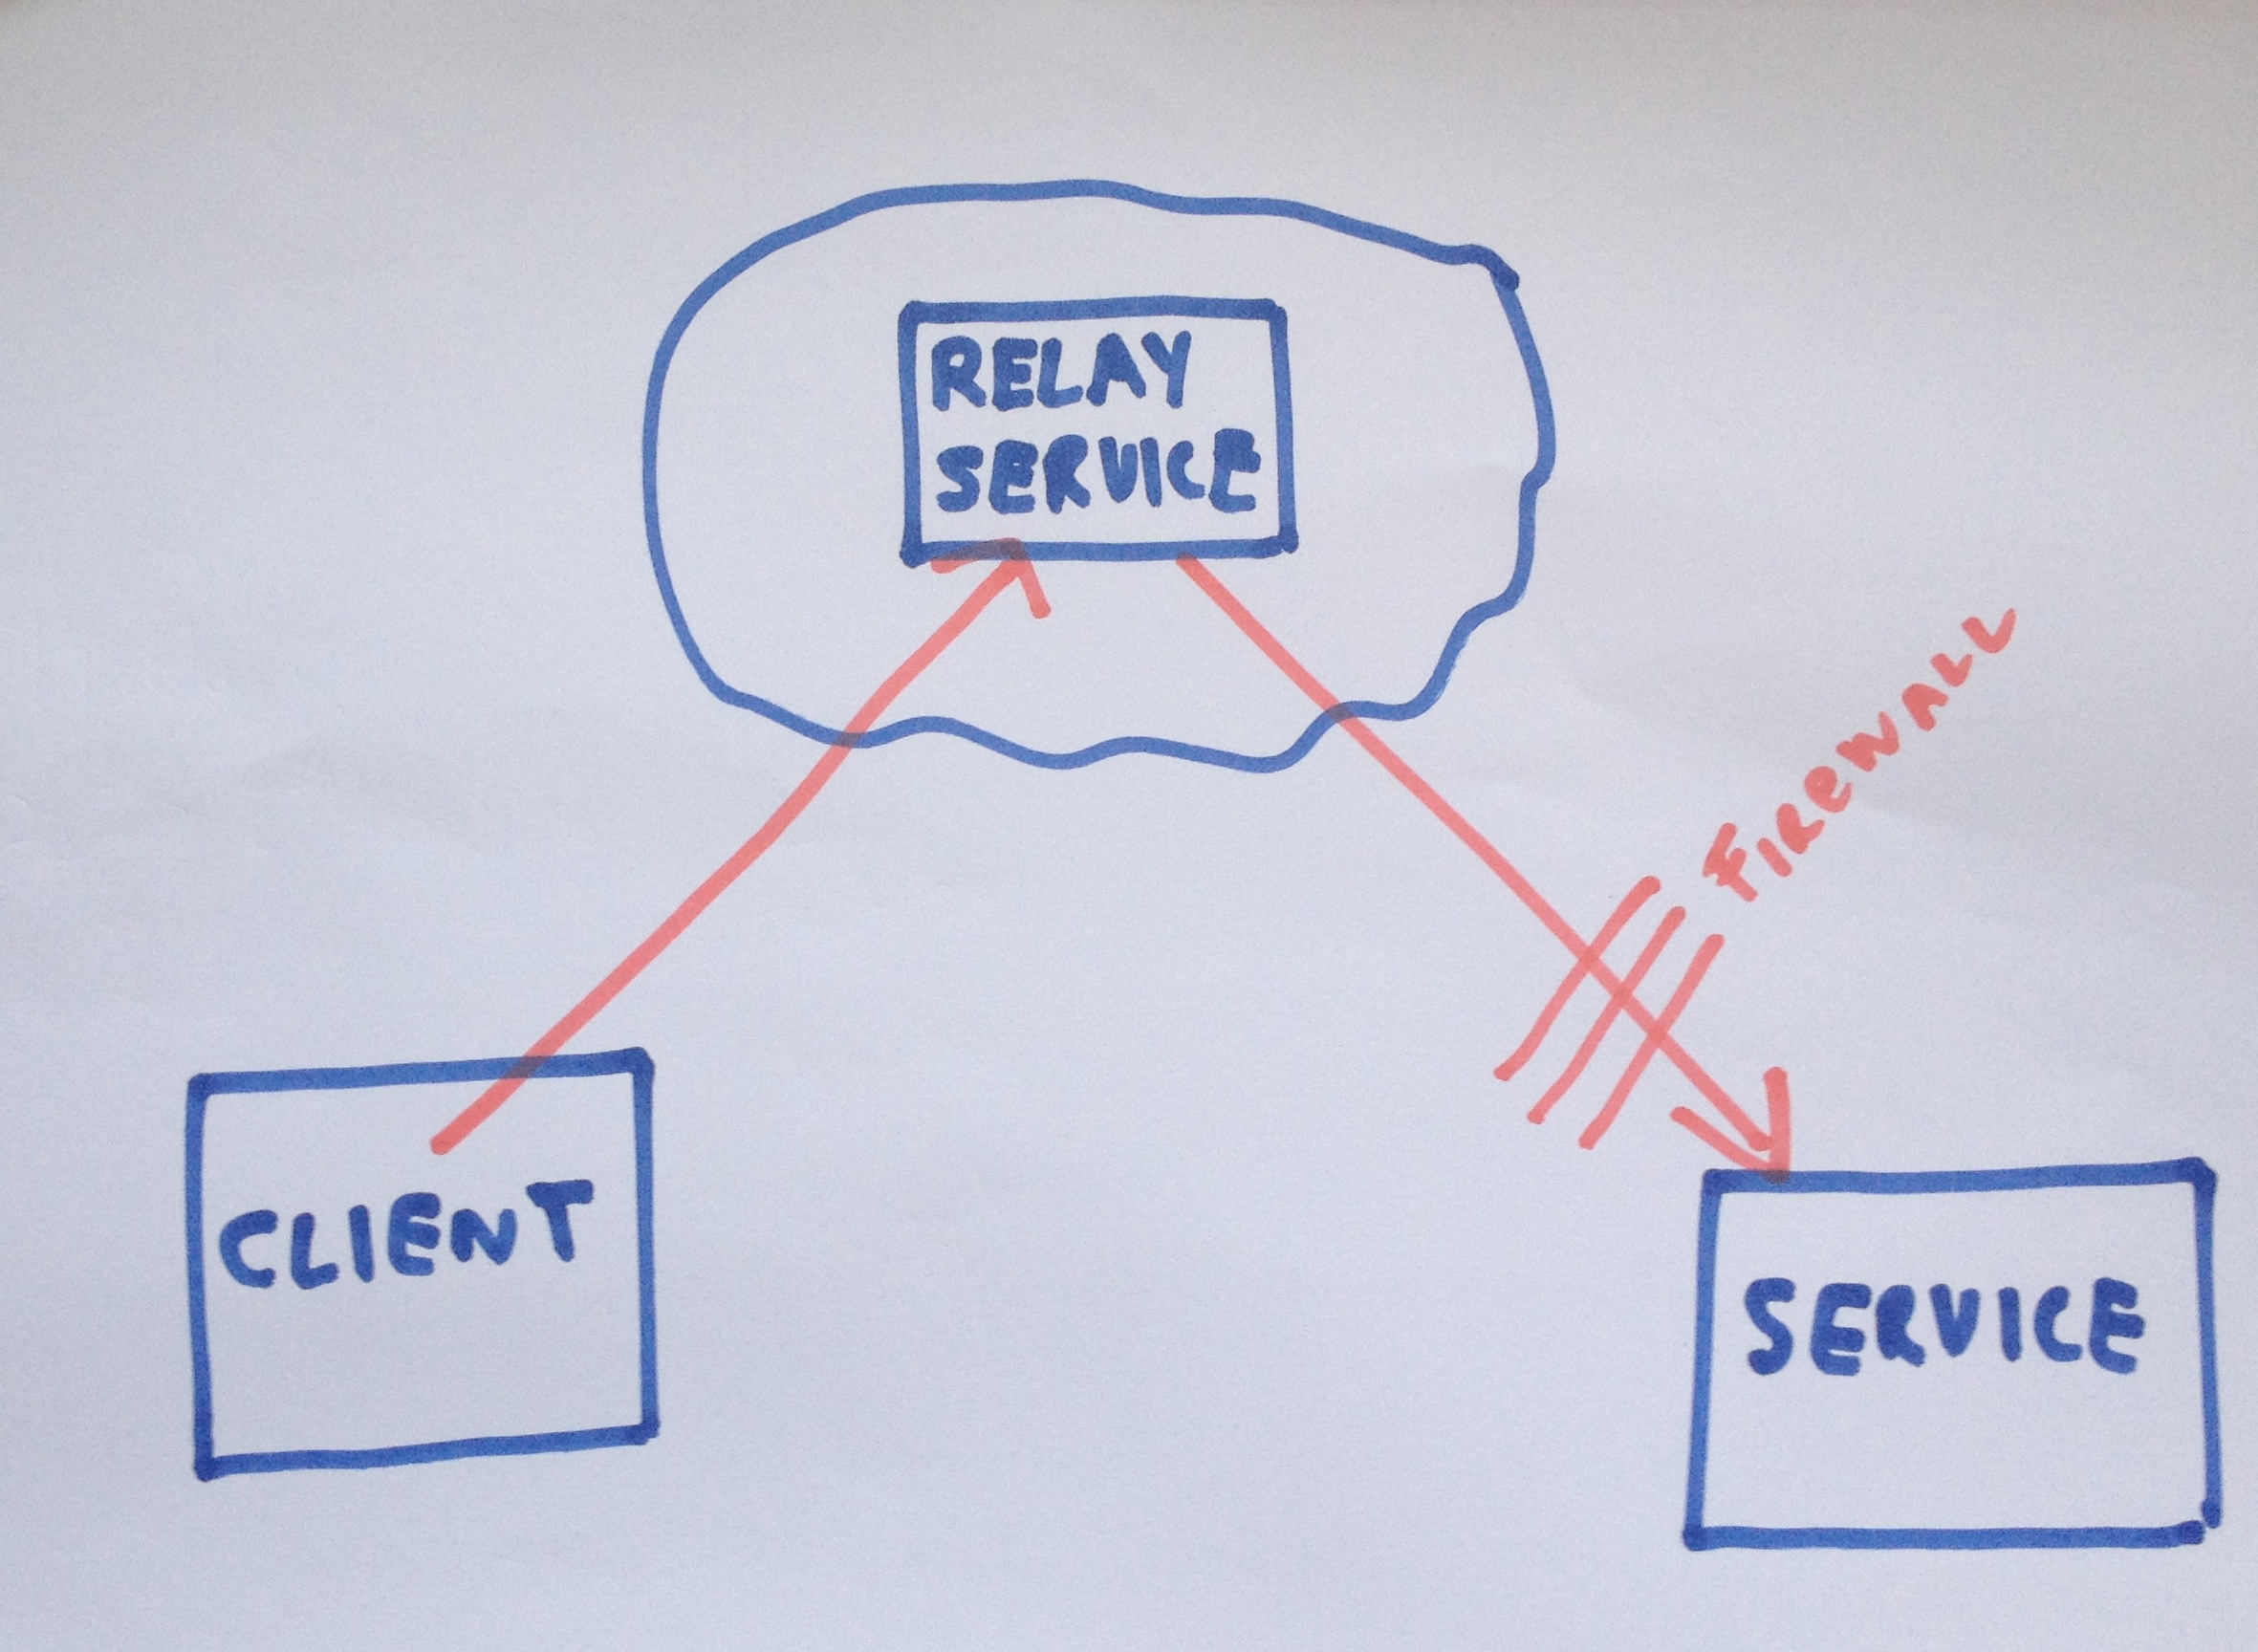 RELAY
SERVICE
FIREWALL
CLIENT
SERVICE